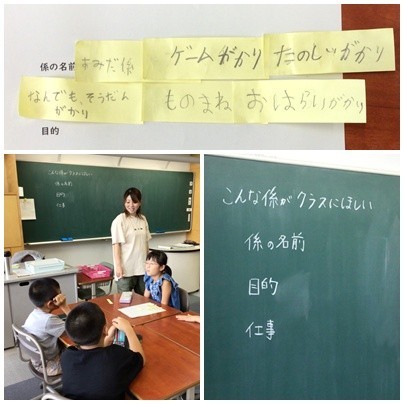 係の名前
あみだ係
ゲームがかり
たのしいがかり
なんでもそうだん
がかり
ものまね
おはらいがかり
目的
こんな係がクラスにほしい
係の名前
目的
仕事
こんな係がクラスにほしい
係の名前
目的
仕事